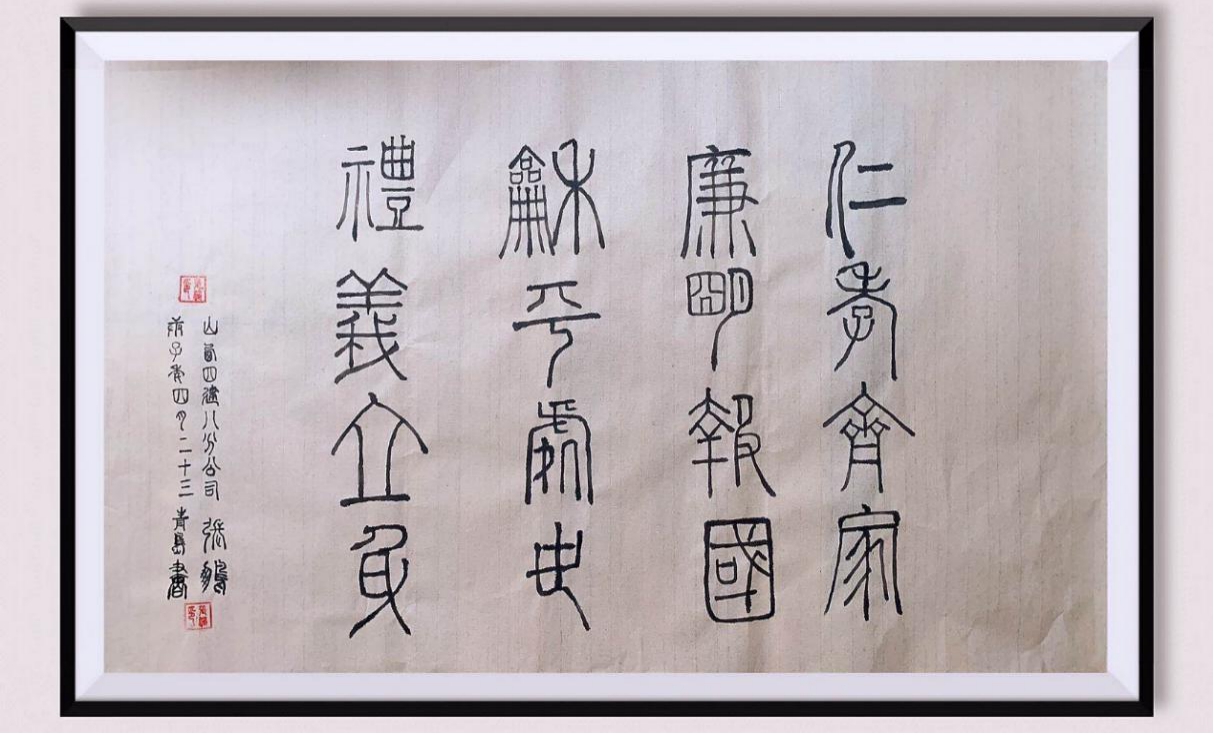 仁孝齊家
廉明報國
龢平處世
禮義立身
山西四建八分公司 張鵬
庚子年四月二十三 青島 書